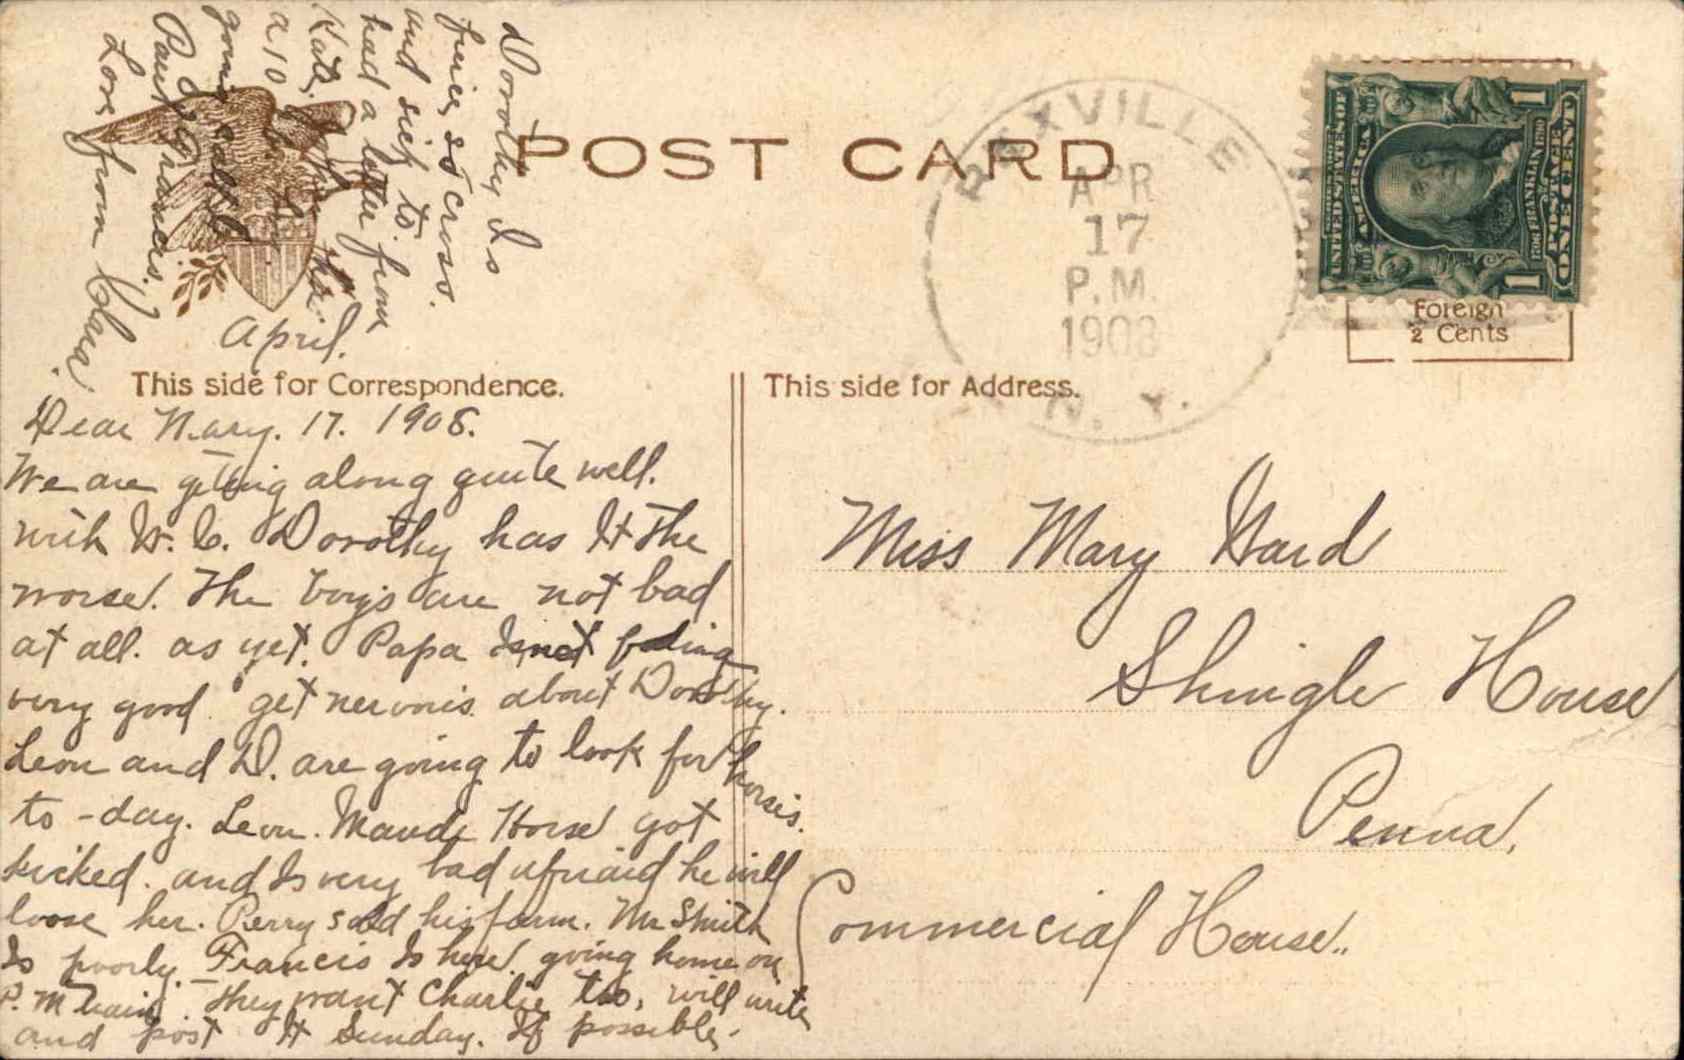 POST CARD
REXVILLE
APR
17
P.M.
1908
N. Y.
UNITED STATES OF
AMERICA
1706 FRANKLIN 1790
POSTAGE
ONE CENT
1
1
Foreign
2 Cents
This side for Correspondence.
This side for Address.
April.
Dear Mary. 17. 1908.
We are getting along quite well.
with W. C. Dorothy has It the
worse. The boys are not bad
at all. as yet. Papa Is not feeling
very good. get nervous about Dorothy.
Leon and D. are going to look for horses.
to-day. Leon. Maude Horse got
kicked. and Is very bad afraid he will
loose her. Perry sold his farm. Mr Smith
Is poorly. Francis Is here. going home on
P. M train. They want Charlie too, will write
and post It Sunday. If possible.
Dorothy Is
so cross.
and sick to.
had a letter from
Kate.
a 10
going
Paw Frances.
Love from Clara.
Miss Mary Ward
Shingle House
Penna,
Commercial House..